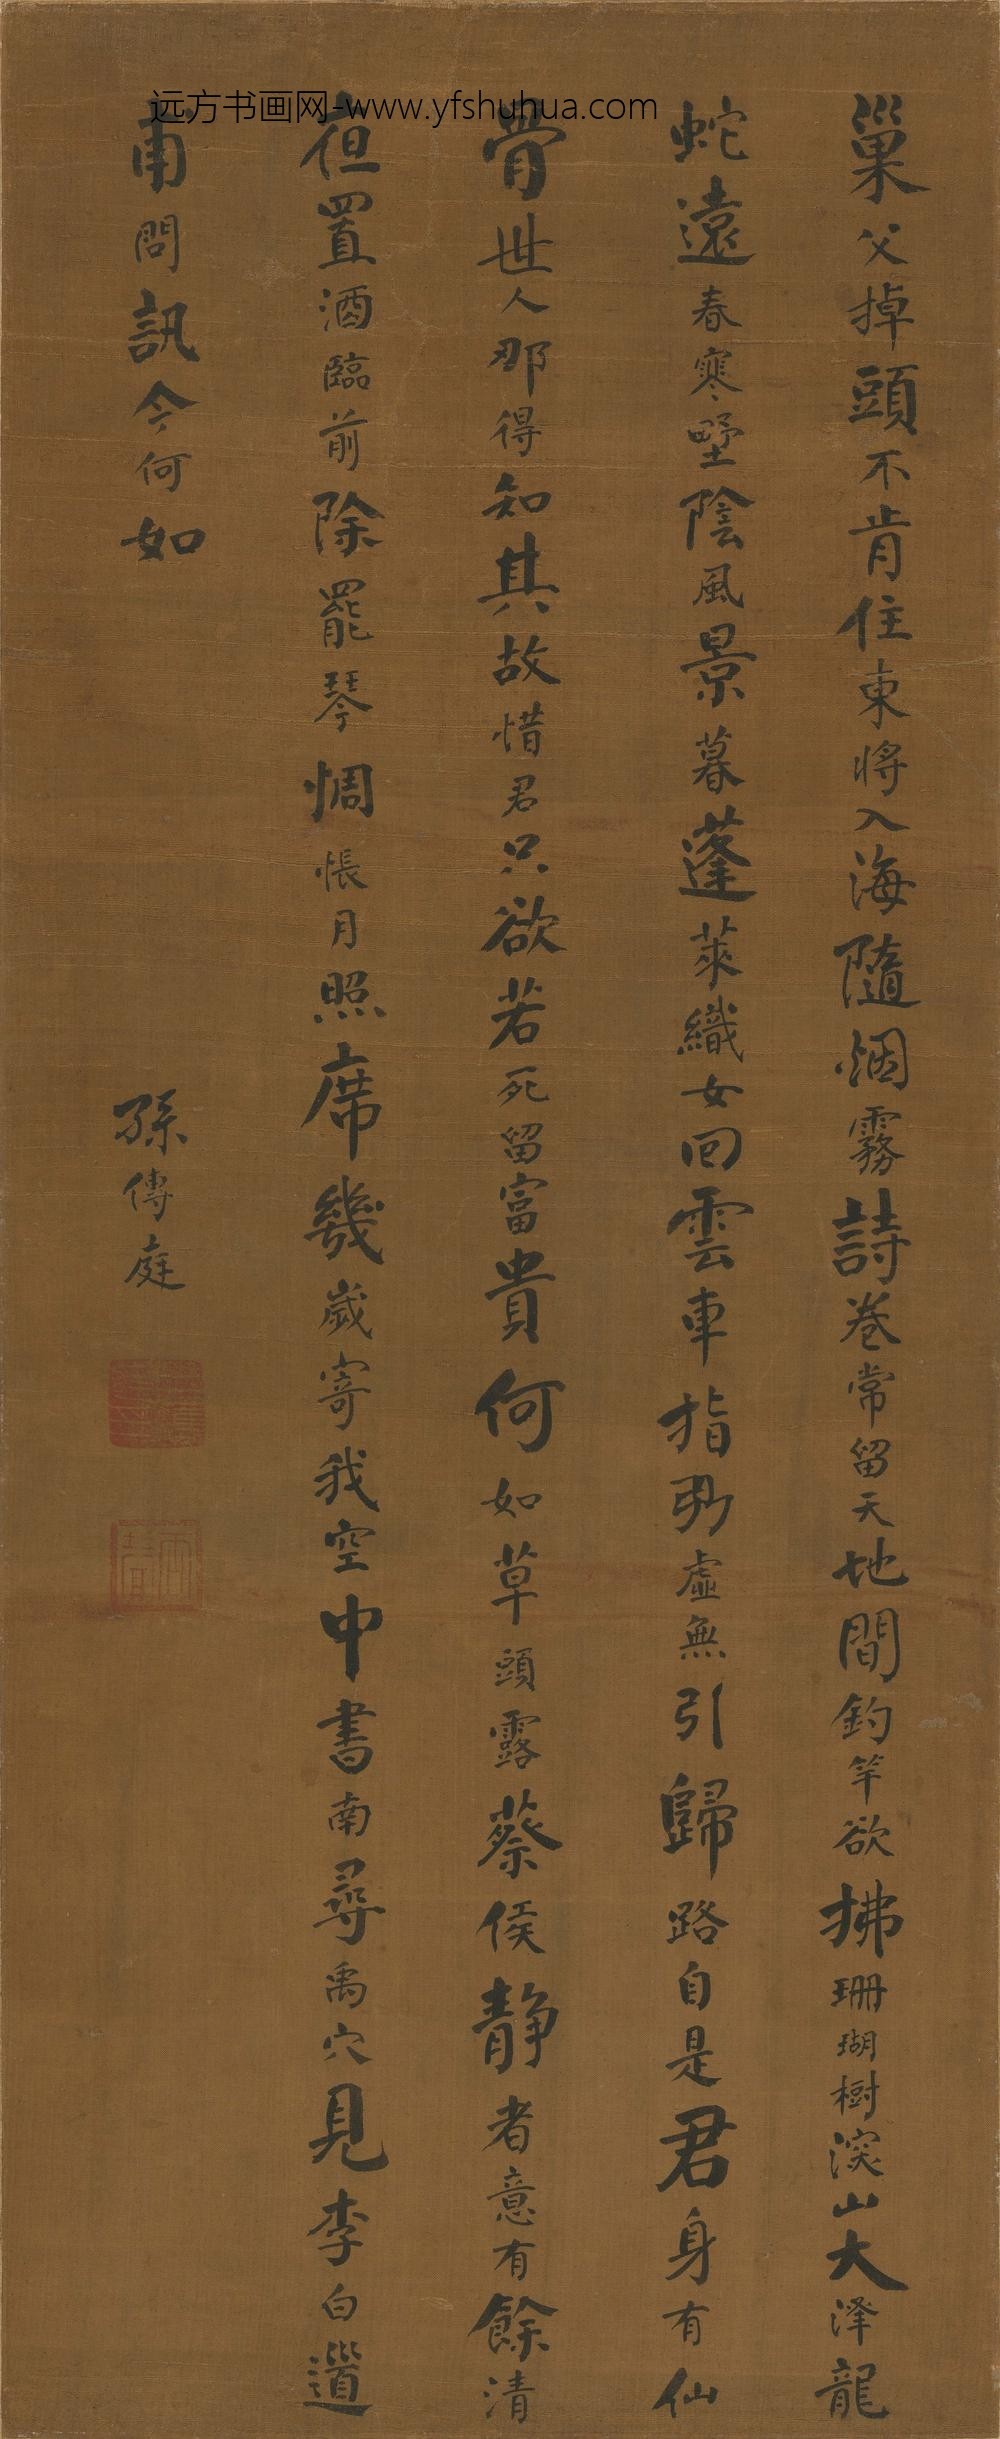 远方书画网-www.yfshuhua.com
巢父掉頭不肯住東將入海隨烟霧詩卷常留天地間釣竿欲拂珊瑚樹深山大澤龍
蛇遠春寒野陰風景暮蓬萊織女回雲車指點虛無引歸路自是君身有仙
骨世人那得知其故惜君只欲若死留富貴何如草頭露蔡侯靜者意有餘清
夜置酒臨前除罷琴惆悵月照席幾歲寄我空中書南尋禹穴見李白道
甫問訊今何如
孫傳庭